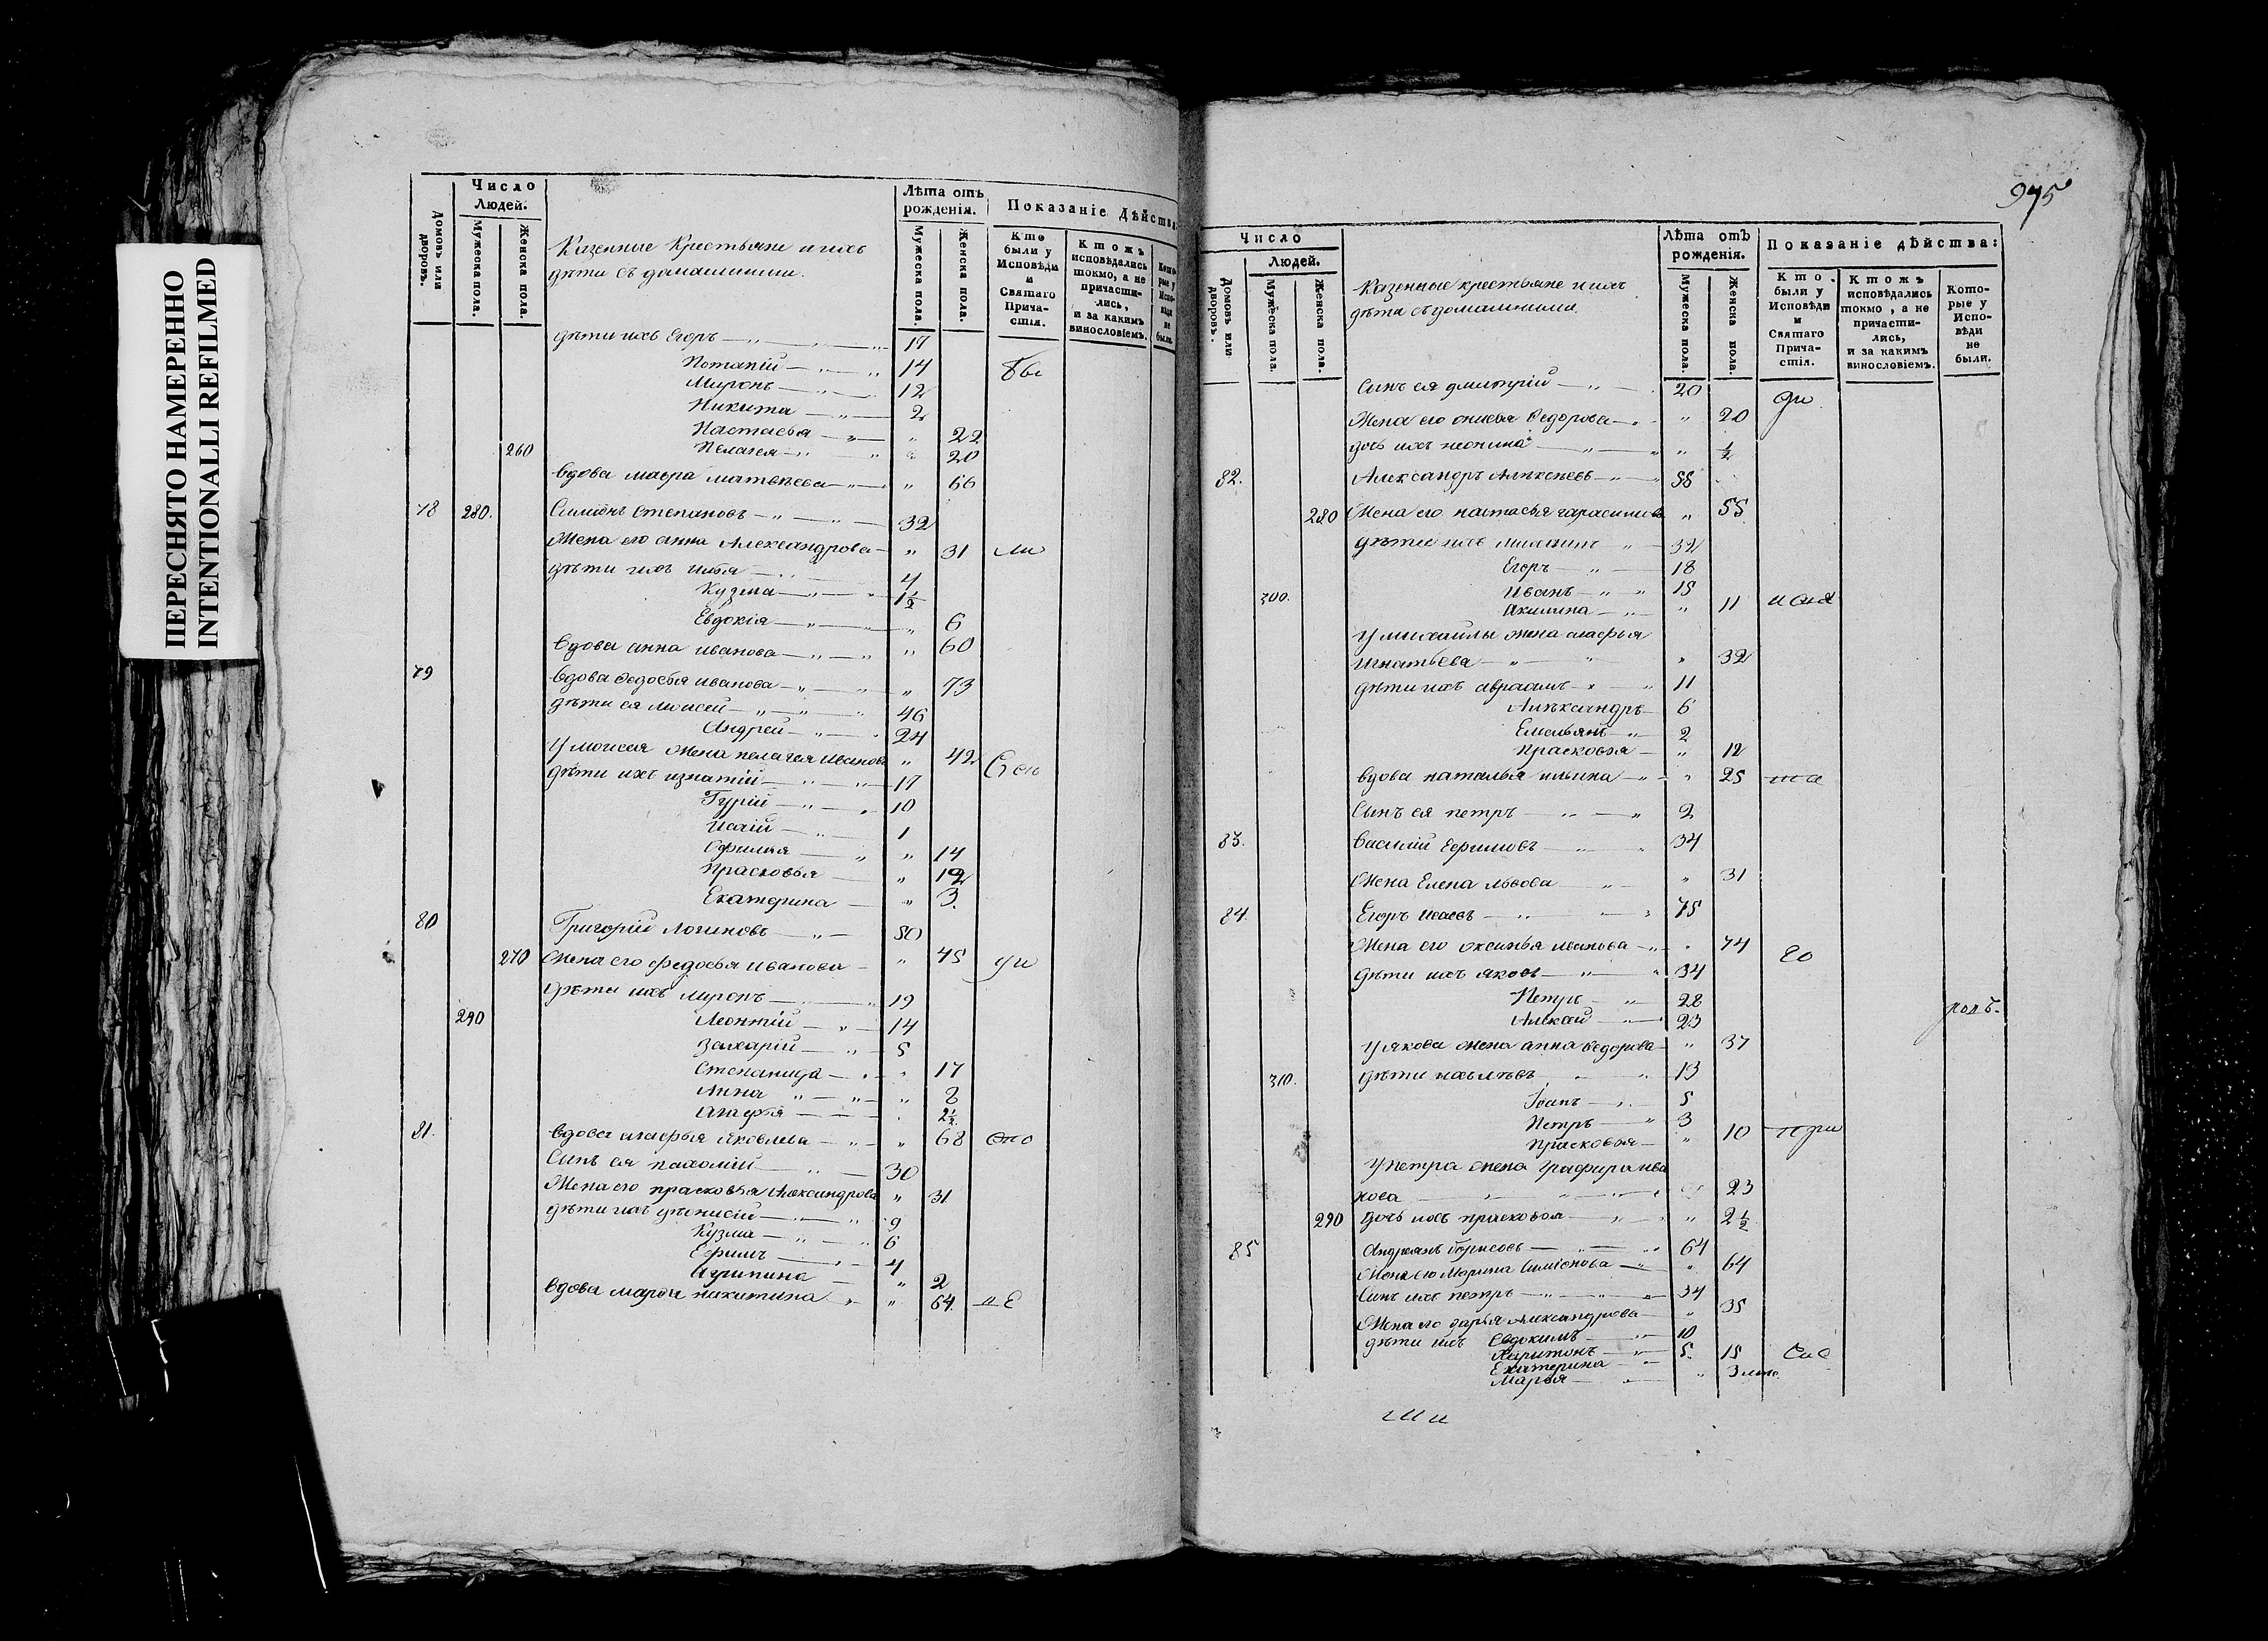 ПЕРЕСНЯТО НАМЕРЕННО
INTENTIONALLI REFILMED
Домовъ или дворовъ.
Число Людей.
Мужеска пола.
Женска пола.
Казенные Крестьяне и ихъ
дѣти съ домашними.
Лѣта отъ рожденія.
Мужеска пола.
Женска пола.
Показаніе Дѣйства
Кто были у Исповѣди и Святаго Прича-стія.
Ктожъ исповѣдались токмо, а не причасти-лись, и за какимъ винословіемъ.
Кото-рые у Испо-вѣди не были.
дѣти ихъ Егоръ 17
Потапій 14 бы
Миронъ 12
Никита 2
Настасья " 22
260 Пелагея " 20
вдова мавра матвѣева " 66
78 280. Симіонъ Степановъ 32
Жена его анна Александрова " 31 ли
дѣти ихъ илья 4
Кузма 1½
Евдокія " 6
вдова анна иванова " 60
79 вдова федосья иванова " 73
дѣти ея моисей 46
Андрей 24
У моисея жена пелагея Иванова " 42
дѣти ихъ игнатій 17
Гурій 10
1
Офимия " 14
прасковья " 12
Екатерина " 3.
80 Григорій Логиновъ 50
270 Жена его федосья иванова " 45
дѣти ихъ миронъ 19
290 Леонтій 14
Захарій 5
Степанида " 17
Анна " 8
Агафья " 2½
81. вдова агафья яковлева " 68
Сынъ ея пахомій 30
Жена его прасковья Александрова " 31
дѣти ихъ діонисій 9
Кузма 6
Ефимъ 4
Агрипина " 2
вдова марфа никитина " 64.
975
Число Людей.
Домовъ или дворовъ.
Мужеска пола.
Женска пола.
Казенные крестьяне и ихъ
дѣти съ домашними.
Лѣта отъ рожденія.
Мужеска пола.
Женска пола.
Показаніе дѣйства:
Кто были у Исповѣди и Святаго Прича-стія.
Ктожъ исповѣдались токмо, а не причасти-лись, и за какимъ винословіемъ.
Кото-рые у Испо-вѣди не были.
Сынъ ея дмитрій 20
Жена его анисья Федорова " 20
дочь ихъ " ½
82. Александръ Алексѣевъ 58
280 Жена его настасья гарасимова " 55.
дѣти ихъ 32
Егоръ 18
300. Иванъ 15
Акилина " 11
У михайлы жена агафья
игнатьева " 32
дѣти ихъ авраамъ 11
Алѣксандръ 6
Емельянъ 2
прасковья " 12
вдова наталья ильина " 25
Сынъ ея петръ 2
83. василій Ефимовъ 34
Жена Елена львова " 31
84. Егоръ исаевъ 75
Жена его оксинья иванова " 74
дѣти ихъ яковъ 34
Петръ 28
Алѣксѣй 23
У якова жена анна Федорова " 37
310. дѣти ихъ левъ 13
Іванъ 5
Петръ 3
прасковья " 10
У петра жена Графира ива
нова 23
290 дочь ихъ прасковья " 2½
85 Андреянъ борисовъ 64
Жена его Марина Симіонова " 64
Сынъ ихъ петръ 34
Жена его дарья Александрова " 35
дѣти ихъ Евдокимъ 10
Харитонъ 5.
Екатерина 15
Марья " 3